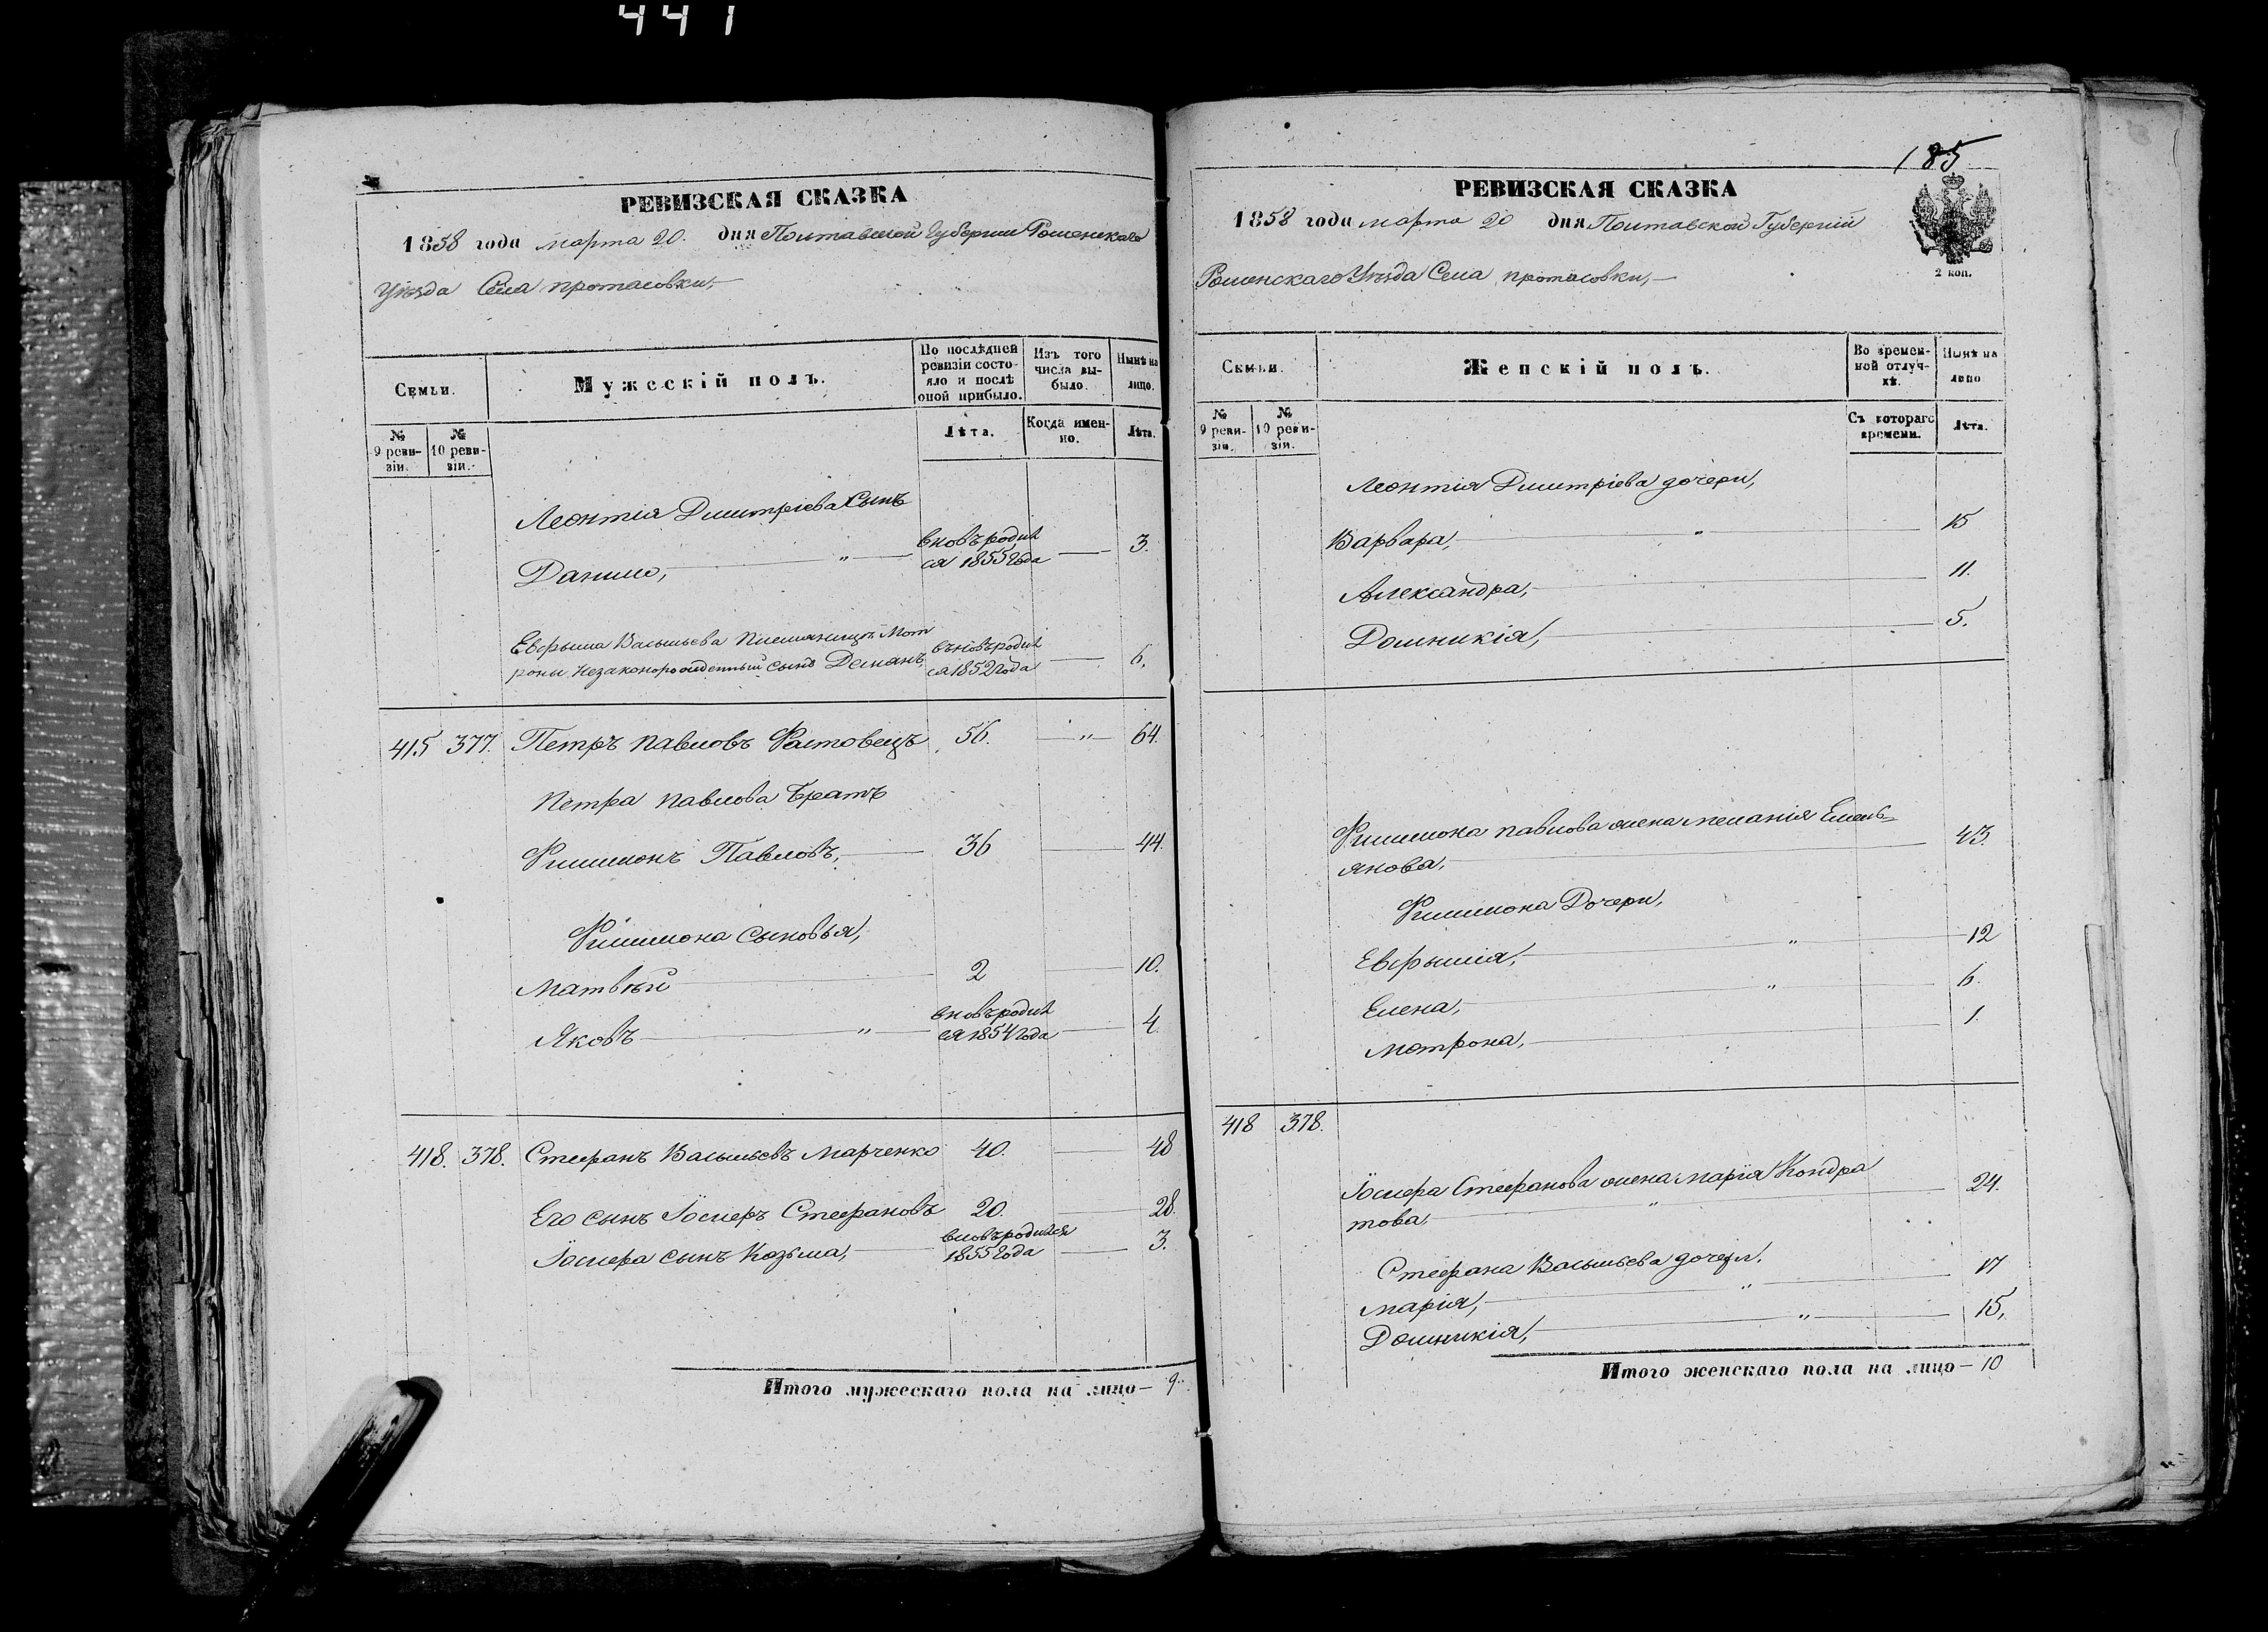 441
РЕВИЗСКАЯ СКАЗКА
1858 года марта 20. дня Полтавской Губернии Роменскаго
Уѣзда Села протасовки,
Семьи.
Мужескій полъ.
По послѣдней
ревизіи состо-
яло и послѣ
оной прибыло.
Изъ того
числа вы-
было.
Нынѣ на
лицо.
№
9 реви-
зіи.
№
10 реви-
зіи.
Лѣта.
Когда имен-
но.
Лѣта.
Леонтія Дмитріева Сынъ
Данило, " вновь родил
ся 1855 года 3.
Евфима Васильева племяницы Мот
роны незаконорожденный сынъ Демянъ, вновь родил
ся 1852 года 6.
415 377. Петръ Павловъ Фастовецъ 56. " 64.
Петра Павлова Братъ
Филимонъ Павловъ, 36 44.
Филимона сыновья,
Матвѣй 2 10.
Яковъ " вновь родил
ся 1854 года 4.
418. 378. Стефанъ Васильевъ Марченко 40. 48
Его сынъ Іосифъ Стефановъ 20. 28.
Іосифа сынъ Козьма, вновь родился
1855 года 3.
Итого мужескаго пола на лицо — 9.
185
РЕВИЗСКАЯ СКАЗКА
1858 года марта 20 дня Полтавской Губерніи
2 коп.
Роменскаго Уѣзда Села протасовки,
Семьи.
Женскій полъ.
Во времен-
ной отлуч-
кѣ.
Нынѣ на
лицо
№
9 реви-
зіи.
№
10 реви-
зіи.
Съ котораго
времени.
Лѣта.
Леонтія Дмитріева дочери,
Варвара, " 15
Александра, 11.
Домникія, 5.
Филимона павлова жена меланія Емель-
янова, 43.
Филимона Дочери,
Евфимія, " 12
Елена, " 6.
Мотрона, 1.
418 378.
Іосифа Стефанова жена марія Кондра
това " 24.
Стефана Васильева дочери.
Марія, " 17
Домникія, " 15,
Итого женскаго пола на лицо — 10